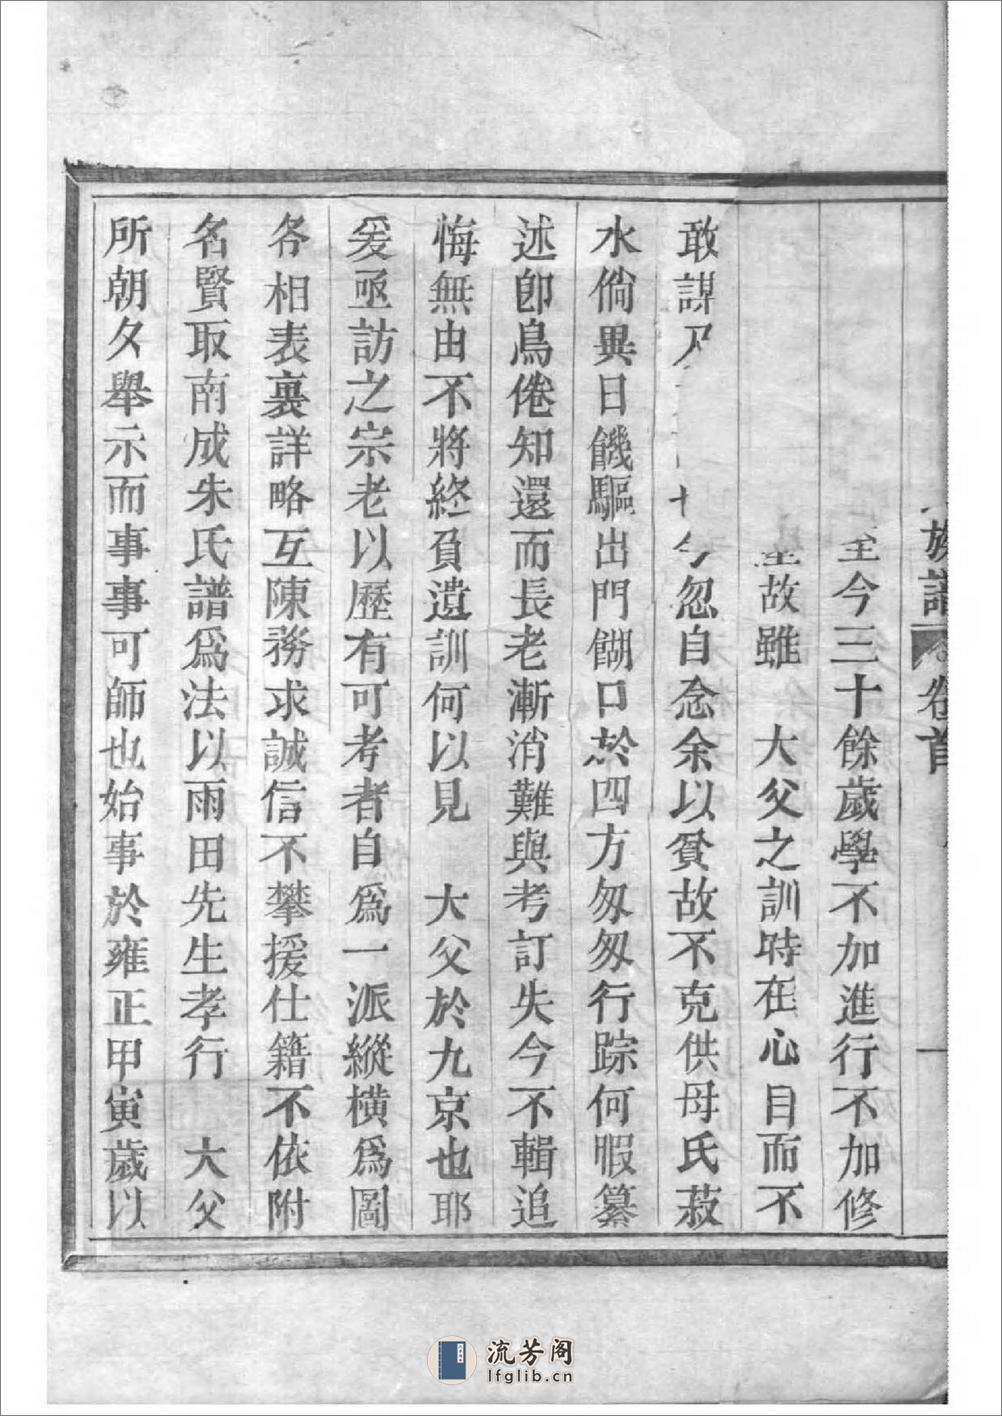 族譜 卷首 一
至今三十餘歲學不加進行不加修
故雖 大父之訓時在心目而不
敢謀及 今忽自念余以貧故不克供母氏菽
水倘異日饑驅出門餬口於四方匆匆行踪何暇纂
述卽鳥倦知還而長老漸消難與考訂失今不輯追
悔無由不將終負遺訓何以見 大父於九京也耶
爰亟訪之宗老以歷有可考者自爲一派縱橫爲圖
各相表裏詳略互陳務求誠信不攀援仕籍不依附
名賢取南成朱氏譜爲法以雨田先生孝行 大父
所朝夕舉示而事事可師也始事於雍正甲寅歲以
流芳阁
lfglib.cn